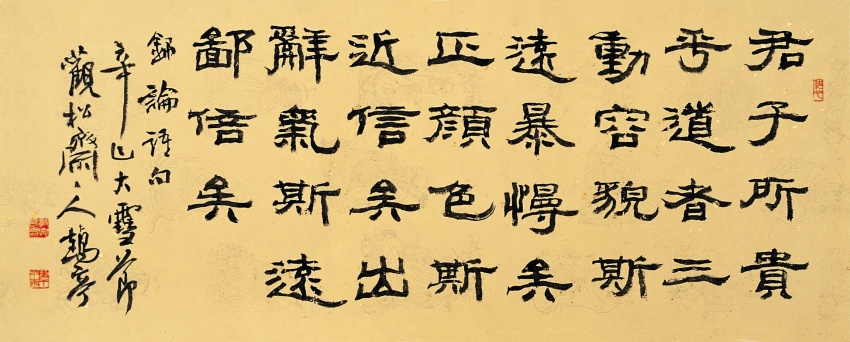 君子所貴
乎道者三
動容貌斯
遠暴慢矣
正顏色斯
近信矣出
辭氣斯遠
鄙倍矣
錄論語句
辛巳大雪節
觀松齋主人